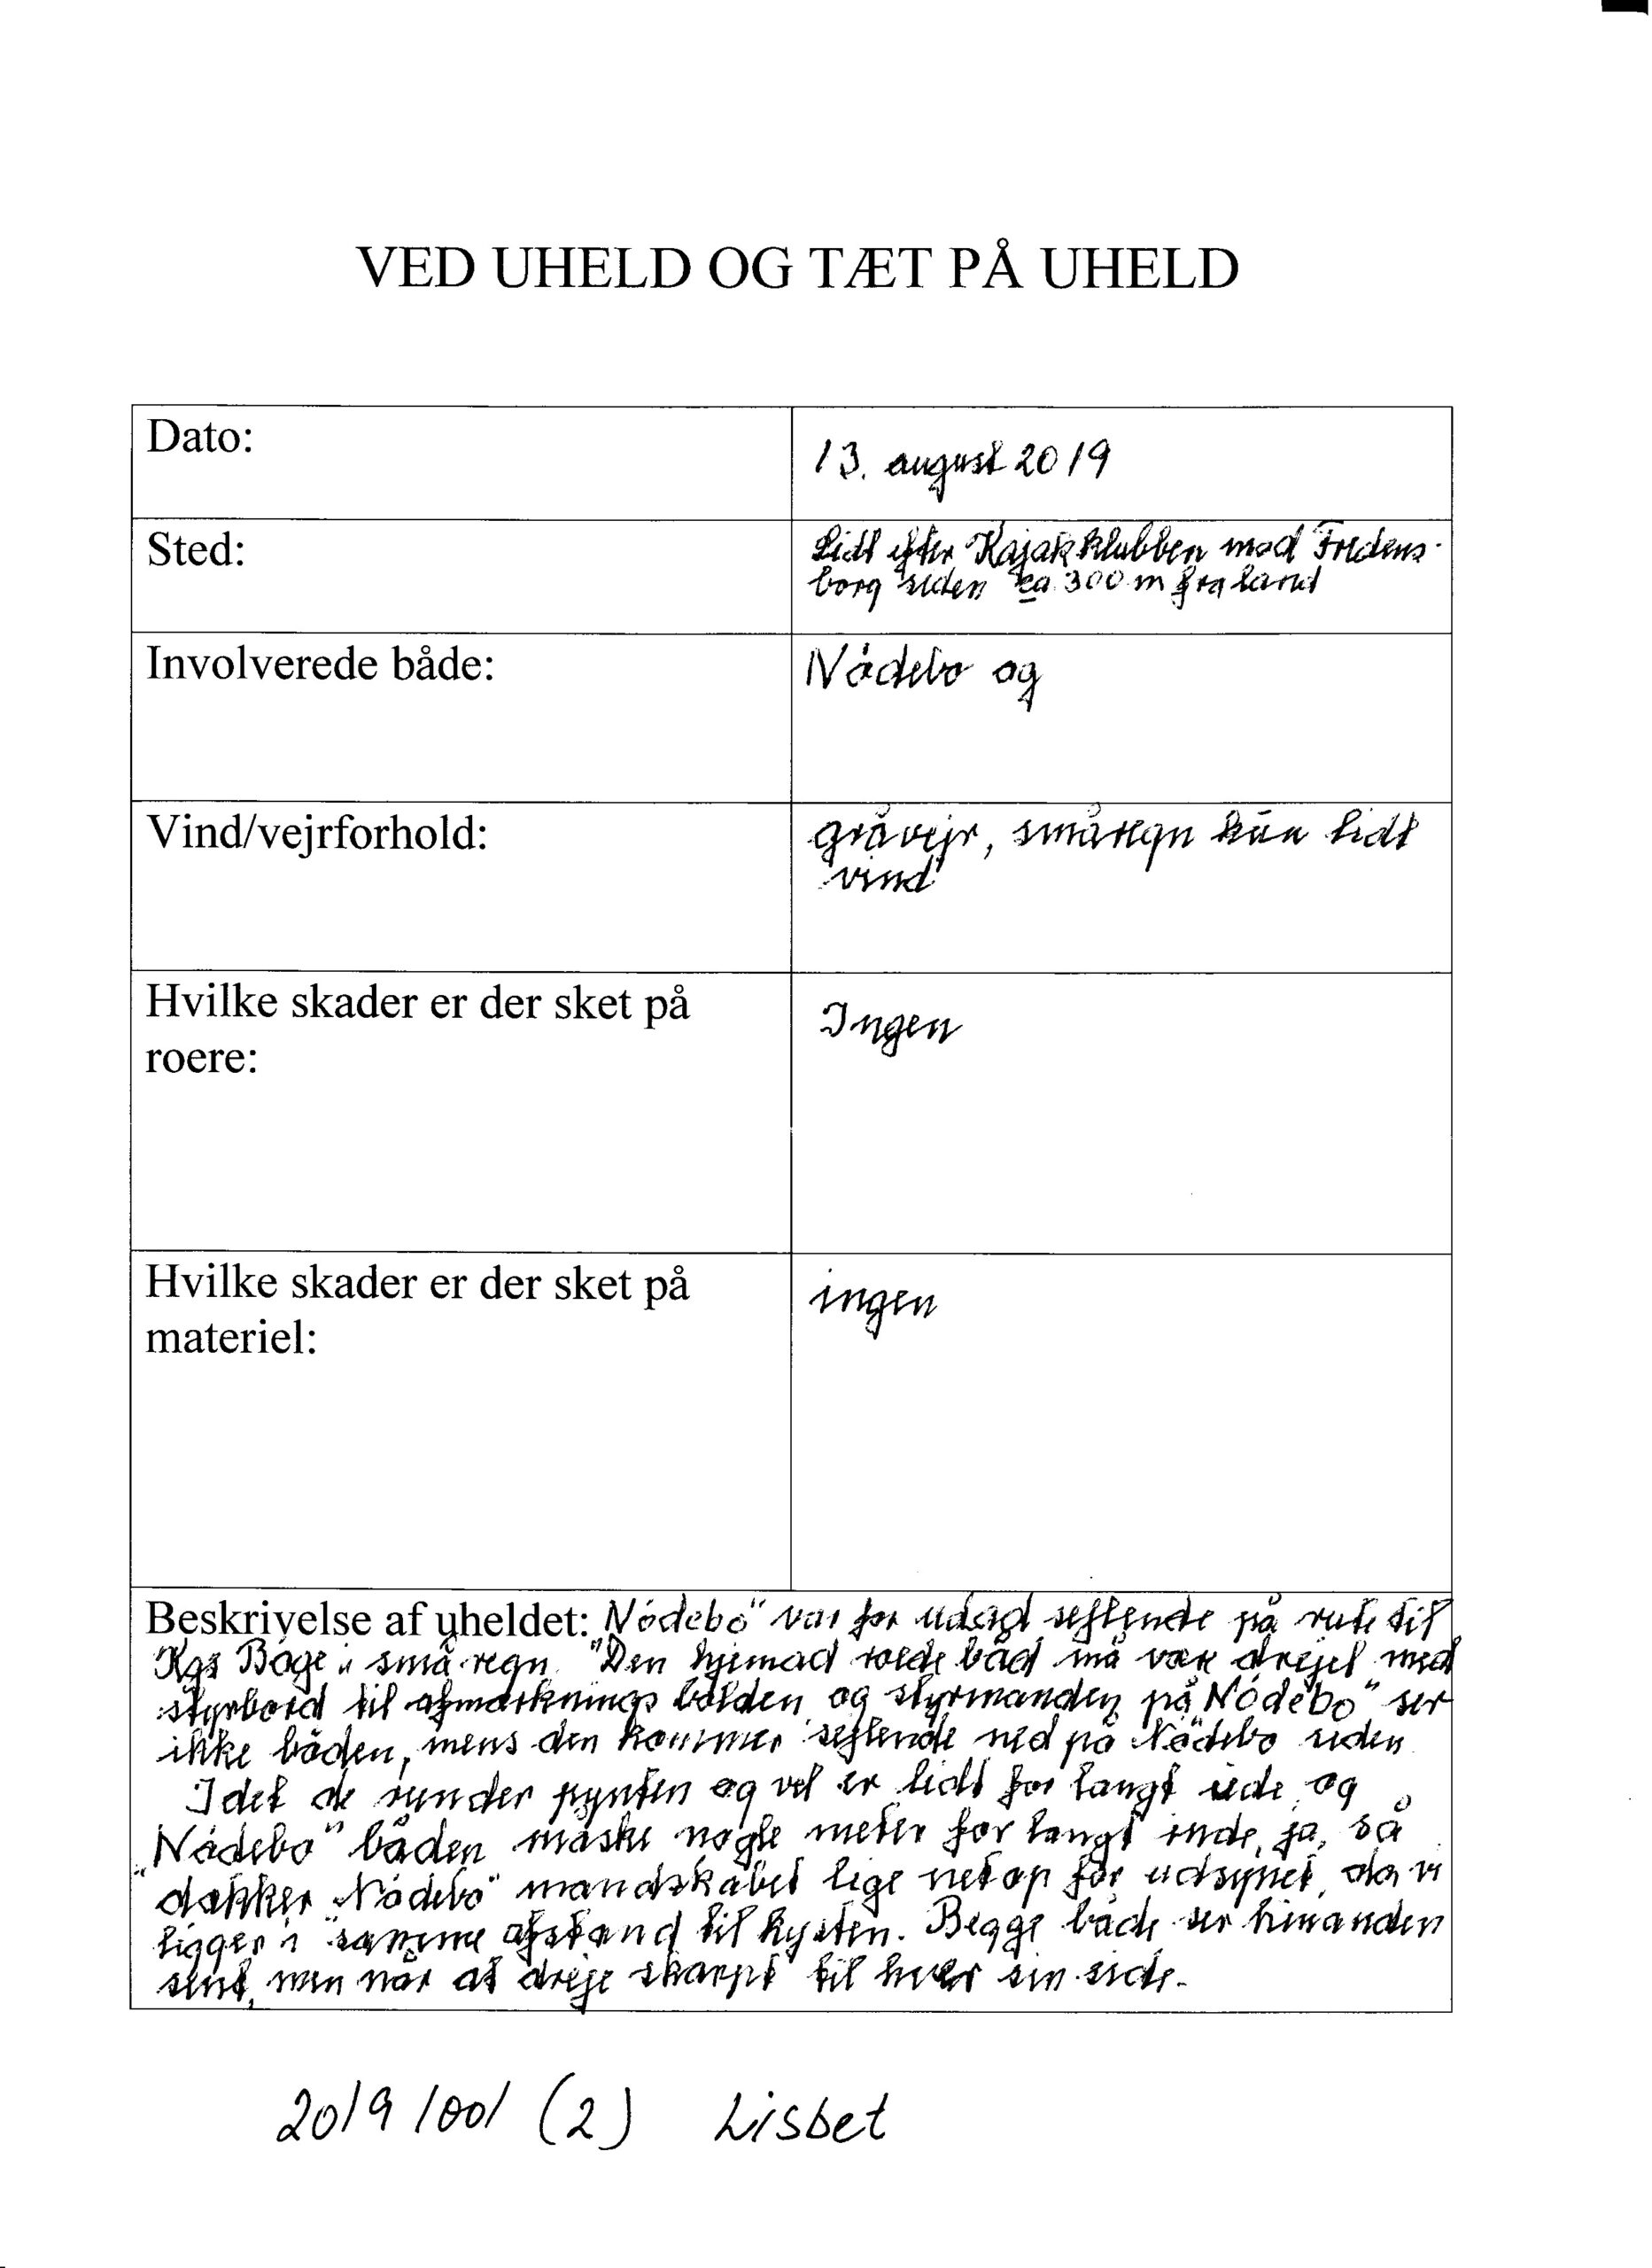 VED UHELD OG TÆT PÅ UHELD
Dato:
13. august 2019
Sted:
Lidt efter Kajakklubben mod Fredens-
borg siden ca. 300 m fra land
Involverede både:
Nødebo og
Vind/vejrforhold:
gråvejr, småregn kun lidt
vind
Hvilke skader er der sket på
roere:
Ingen
Hvilke skader er der sket på
materiel:
ingen
Beskrivelse af uheldet: Nødebo" var for udsejlende på rute til
Kgs Bøge i små regn. Den hjemad roede båd må være drejet med
styrbord til afmærknings bolden og styrmanden på Nødebo" ser
ikke båden, mens den kommer sejlende ned på Nødebo siden
Idet de runder pynten og vel er lidt for langt ude, og
"Nødebo" båden måske nogle meter for langt inde, ja, så
dækker "Nødebo" mandskabet lige netop for udsynet, da vi
ligger i samme afstand til kysten. Begge både ser hinanden
sent, men når at dreje skarpt til hver sin side.
2019/001 (2) Lisbet